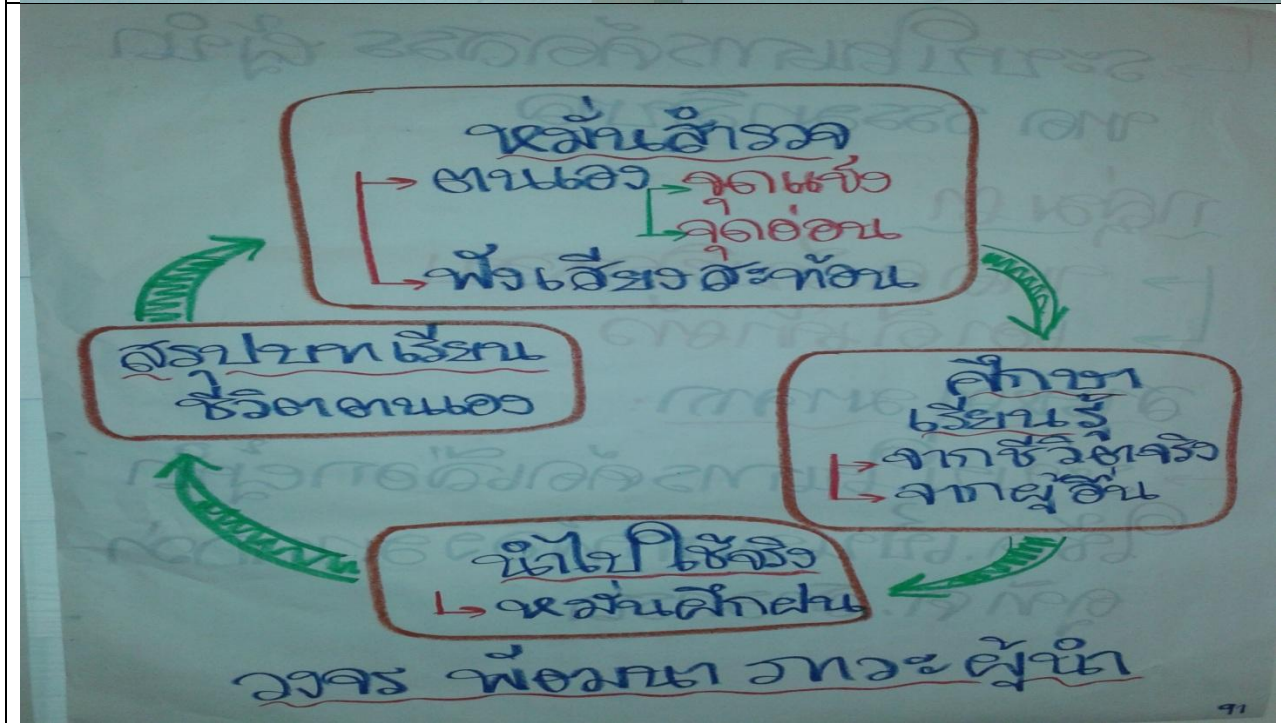 หมั่นสำรวจ
ตนเอง จุดแข็ง
จุดอ่อน
ฟังเสียงสะท้อน
ศึกษา
เรียนรู้
จากชีวิตจริง
จากผู้อื่น
นำไปใช้จริง
หมั่นฝึกฝน
สรุปบทเรียน
ชีวิตตนเอง
วงจร พัฒนา ภาวะผู้นำ
91